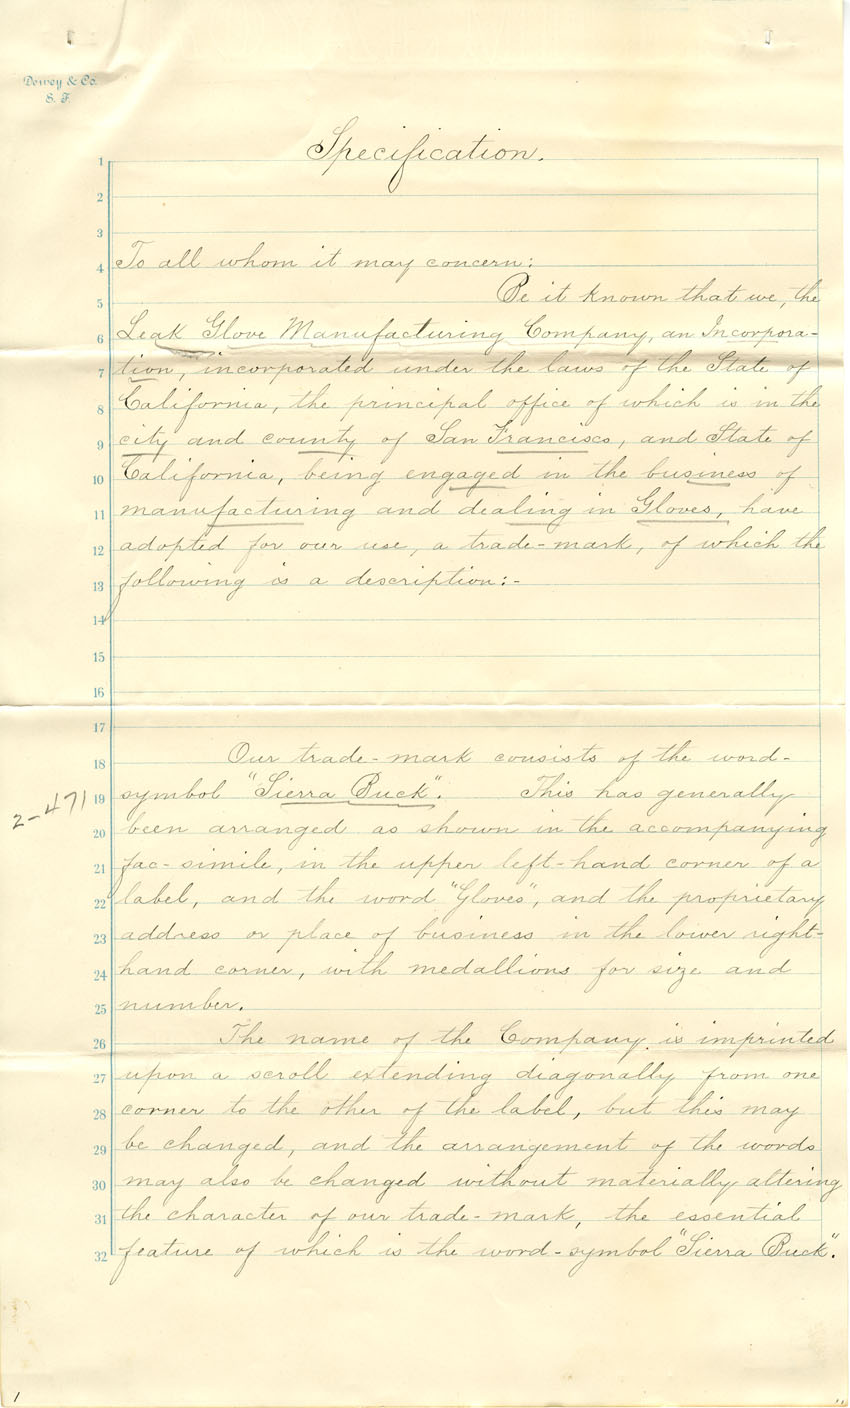 Dewey & Co.
S. F.
Specification.
1
2
3
4 To all whom it may concern:
5 Be it known that we, the
6 Leak Glove Manufacturing Company, an Incorpora-
7 tion, incorporated under the laws of the State of
8 California, the principal office of which is in the
9 city and county of San Francisco, and State of
10 California, being engaged in the business of
11 manufacturing and dealing in Gloves, have
12 adopted for our use, a trade-mark, of which the
13 following is a description:-
14
15
16
17
18 Our trade-mark consists of the word-
19 symbol "Sierra Buck". This has generally
2-471
20 been arranged as shown in the accompanying
21 fac-simile, in the upper left-hand corner of a
22 label, and the word "Gloves", and the proprietary
23 address or place of business in the lower right-
24 hand corner, with medallions for size and
25 number.
26 The name of the Company is imprinted
27 upon a scroll extending diagonally from one
28 corner to the other of the label, but this may
29 be changed, and the arrangement of the words
30 may also be changed without materially altering
31 the character of our trade-mark, the essential
32 feature of which is the word-symbol "Sierra Buck".
1